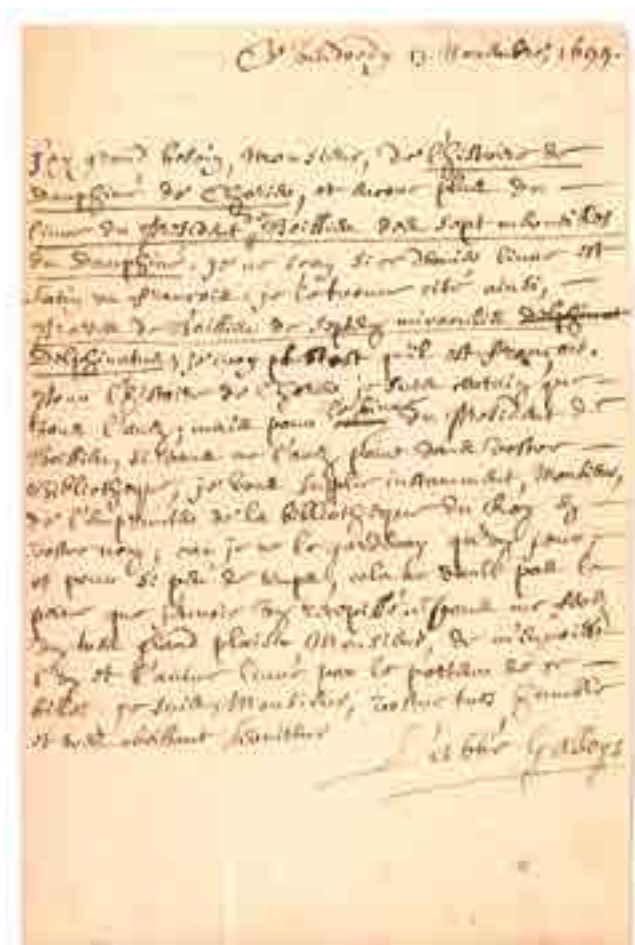 Ce vendredy 13 Novembre, 1699.
J'ay grand besoin, Monsieur, de l'Histoire de
Dauphiné de Chorier, et encore plus du
livre du President de Boissieu des sept miracles
du Dauphiné. je ne sçay si ce dernier livre est
latin ou françois; je le trouve cité ainsi,
de Boissieu de septem miraculis Delphinat
Delphinatus, je croy plutost qu'il est françois.
Pour l'Histoire de Chorier je suis certain que
vous l'avez; mais pour le livre du President de
Boissieu, si vous ne l'avez point dans vostre
Bibliotheque, je vous supplie instamment, Monsieur,
de l'emprunter de la Bibliotheque du Roy en
vostre nom; car je ne le garderay qu'un jour
et pour si peu de temps, cela ne vault pas la
peine que j'envoie un vous me ferez
un tres grand plaisir Monsieur, de m'envoier
l'un et l'autre livre par le porteur de ce
billet. je suis, Monsieur, vostre tres humble
et tres obeissant serviteur